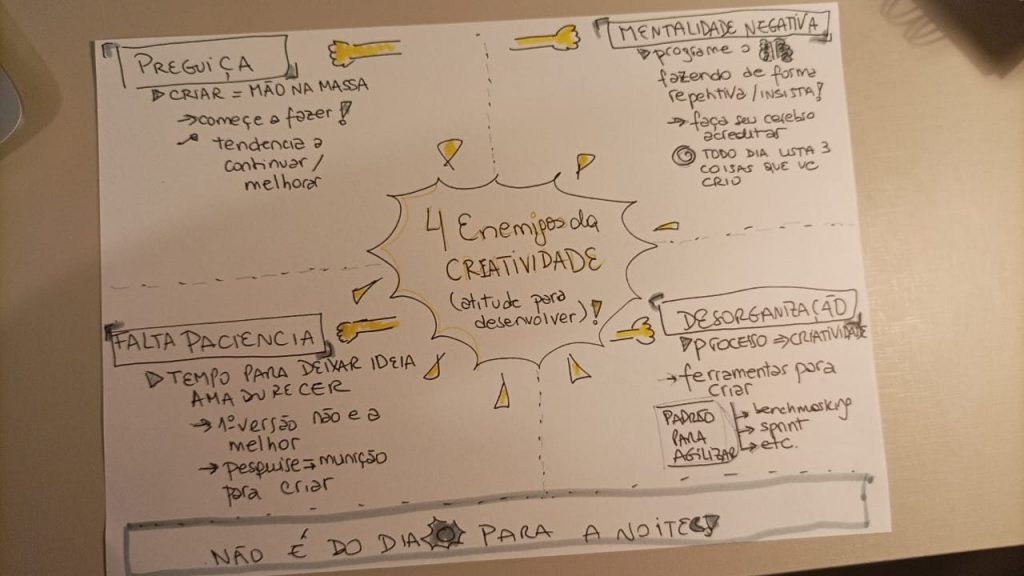 PREGUIÇA
CRIAR = MÃO NA MASSA
→começe a fazer!
→ tendencia a
continuar/
melhorar
MENTALIDADE NEGATIVA
programe o
fazendo de forma
repetitiva/INSISTA!
→ faça seu cerebro
acreditar
TODO DIA LISTA 3
COISAS QUE VC
CRIO
4 Enemigos da
CREATIVIDADE
(atitude para
desenvolver)!
FALTA PACIENCIA
TEMPO PARA DEIXAR IDEIA
AMADURECER
→ 1ª versão não e a
melhor
→ pesquise = munição
para criar
DESORGANIZAÇÃO
PROCESSO ⇒ CRIATIVIDADE
→ ferramentas para
criar
PADRÃO
PARA
AGILIZAR
→ benchmarking
→ sprint
→ etc.
NÃO É DO DIA PARA A NOITE